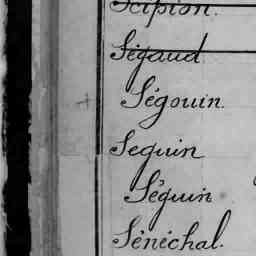 Scipion.
Ségaud
Ségouin
Seguin
Séguin
Sénéchal.